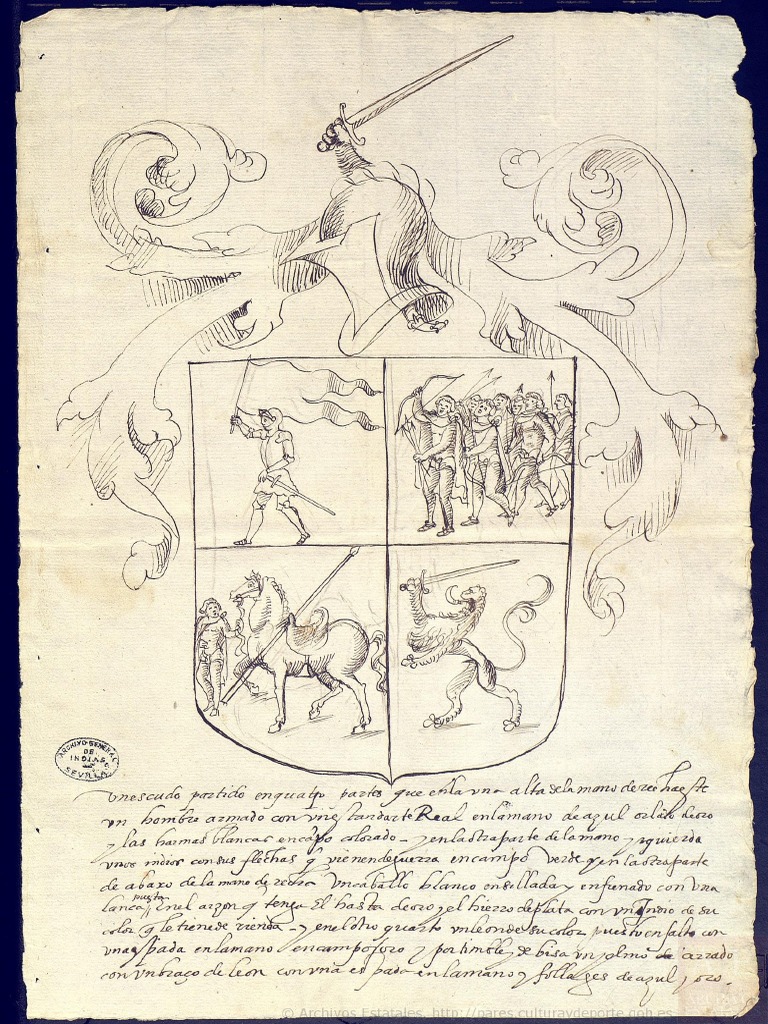 ARCHIVO GENERAL
DE
INDIAS
SEVILLA
un escudo partido en quatro partes que en la una alta de la mano derecha este
un hombre armado con un estandarte Real en la mano de azul orlado de oro
y las harmas blancas en canpo colorado – y en la otra parte de la mano yzquierda
unos indios con sus flechas q vienen de guerra en campo verde y en la otra parte
de abaxo de la mano derecha un caballo blanco ensillado y enfrenado con una
lanca puesta en el arzon q tenga el hasta de oro y el hierro de plata con un Indio de su
color q le tiene de rienda – y en el otro quarto un leon de su color puesto en salto con
una espada en la mano en campo oro y por timble y debisa un yelmo cerrado
con un braço de leon con una espada en la mano y follages de azul y oro.
© Archivos Estatales, http://pares.culturaydeporte.gob.es